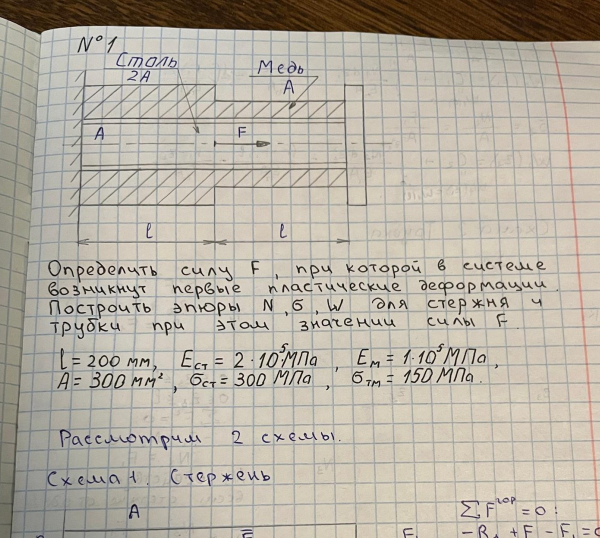 N°1
Сталь
2А
Медь
А
А
F
l
l
Определить силу F, при которой в системе
возникнут первые пластические деформации.
Построить эпюры N, б, W для стержня и
трубки при этом значении силы F.
l = 200 мм, Eст = 2·10⁵ МПа, Eм = 1·10⁵ МПа,
A = 300 мм², бст = 300 МПа, бтм = 150 МПа.
Рассмотрим 2 схемы.
Схема 1. Стержень
А
∑Fгор = 0: